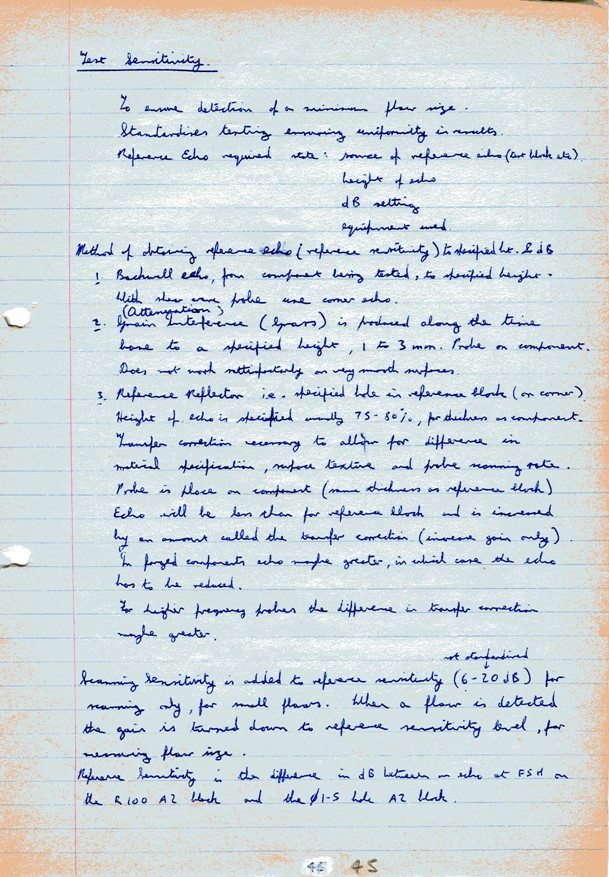 Test Sensitivity.
To ensure detection of a minimum flaw size.
Standardises testing ensuring uniformity in results.
Reference Echo required state: source of reference echo (test block etc)
height of echo
dB setting
equipment used
Method of obtaining reference echo (reference sensitivity) to specified ht. & dB
1 Backwall echo, from component being tested, to specified height.
With shear wave probe use corner echo.
(Attenuation)
2. Grain Interference (Grass) is produced along the time
base to a specified height, 1 to 3 mm. Probe on component.
Does not work satisfactorily on very smooth surfaces.
3. Reference Reflector i.e. specified hole in reference block (or corner).
Height of echo is specified usually 75-80%, for thickness as component.
Transfer correction necessary to allow for difference in
material specification, surface texture and probe scanning rate.
Probe is place on component (same thickness as reference block)
Echo will be less than for reference block and is increased
by an amount called the transfer correction (increase gain only).
In forged components echo maybe greater, in which case the echo
has to be reduced.
For higher frequency probes the difference in transfer correction
maybe greater.
not standardised
Scanning Sensitivity is added to reference sensitivity (6-20 dB) for
scanning only, for small flaws. When a flaw is detected
the gain is turned down to reference sensitivity level, for
measuring flaw size.
Reference Sensitivity is the difference in dB between an echo at FSH on
the R100 A2 block and the ∅1-5 hole A2 block.
45